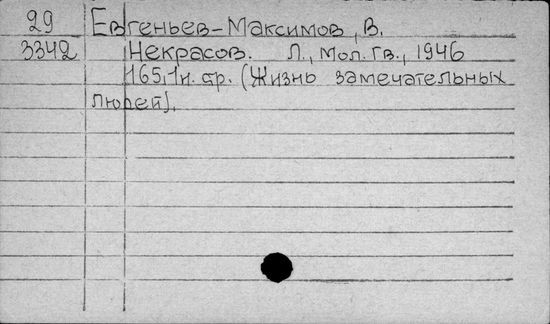 29 Евгеньев-Максимов, В.
3342 Некрасов. Л., Мол. гв., 1946
165,1н. стр. (Жизнь замечательных
людей).